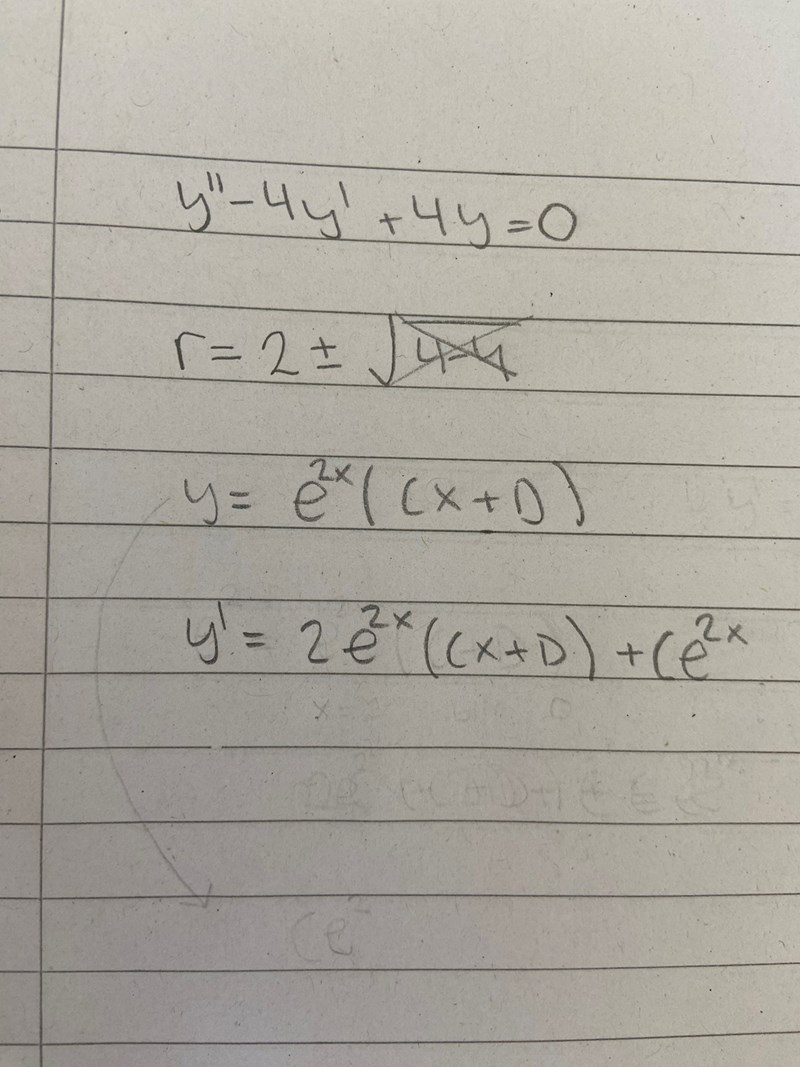 y'' - 4y' + 4y = 0
r = 2 ± √4-4
y = e^2x (Cx + D)
y' = 2e^2x (Cx + D) + Ce^2x
Ce^2